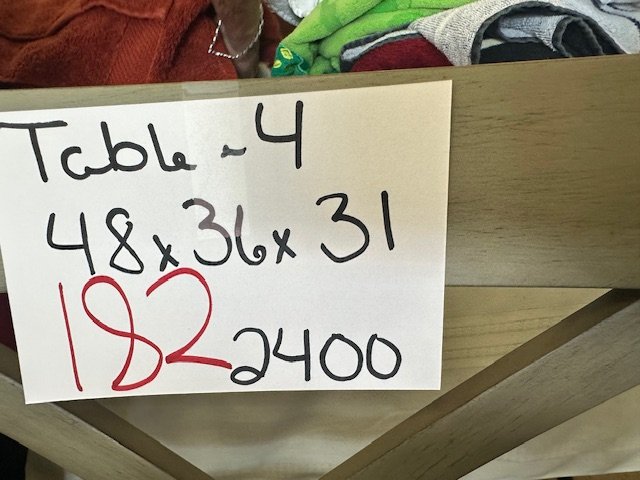 Table - 4
48x36x31
182 2400